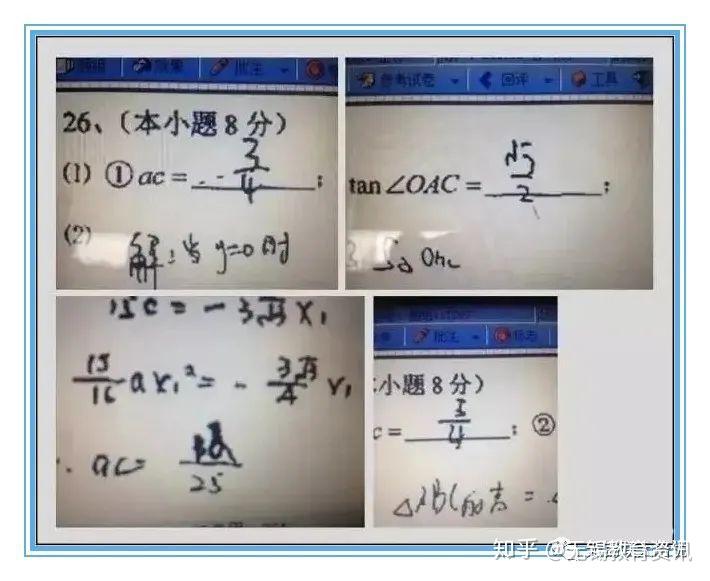 批注
26、(本小题8分)
(1) ①ac= -3/4 ;
(2) 解:当y=0时
参考试卷 回评 工具
tan∠OAC= √5/2 ;
15c=-3√3x₁
15/16 ax₁²=-3√3/4 x₁
ac=
25
批注 标志
小题8分)
c= 3/4 ; ②
△ABC的高=
知乎 @无锡教育资讯